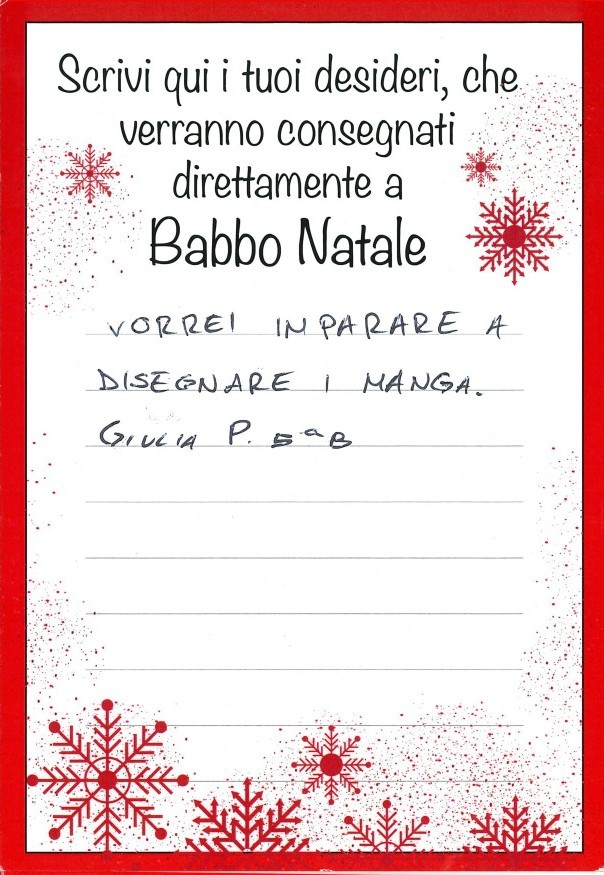 Scrivi qui i tuoi desideri, che
verranno consegnati
direttamente a
Babbo Natale
VORREI INPARARE A
DISEGNARE I MANGA.
GIULIA P. 5ªB